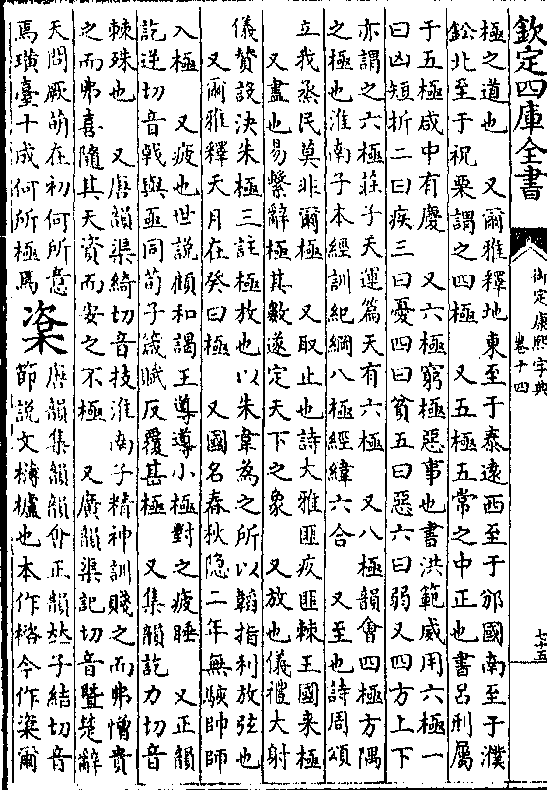 欽定四庫全書
御定康熙字典
卷十四
七十五
極之道也　又爾雅釋地東至于泰遠西至于邠國南至于濮
鈆北至于祝栗謂之四極　又五極五常之中正也書呂刑屬
于五極咸中有慶　又六極窮極惡事也書洪範威用六極一
曰凶短折二曰疾三曰憂四曰貧五曰惡六曰弱又四方上下
亦謂之六極莊子天運篇天有六極　又八極韻會四極方隅
之極也淮南子本經訓紀綱八極經緯六合　又至也詩周頌
立我烝民莫非爾極　又取止也詩大雅匪疚匪棘王國來極
又盡也易繫辭極其數遂定天下之象　又放也儀禮大射
儀贊設決朱極三註極放也以朱韋為之所以韜指利放弦也
又爾雅釋天月在癸曰極　又國名春秋隱二年無駭帥師
入極　又疲也世說顧和謁王導導小極對之疲睡　又正韻
訖逆切音戟與亟同荀子箴賦反覆甚極　又集韻訖力切音
棘殊也　又唐韻渠綺切音技淮南子精神訓賤之而弗憎貴
之而弗喜隨其天資而安之不極　又廣韻渠記切音曁楚辭
天問厥萌在初何所意
焉璜臺十成何所極焉
楶
唐韻集韻韻會正韻𠀤子結切音
節說文欂櫨也本作㮞今作楶爾